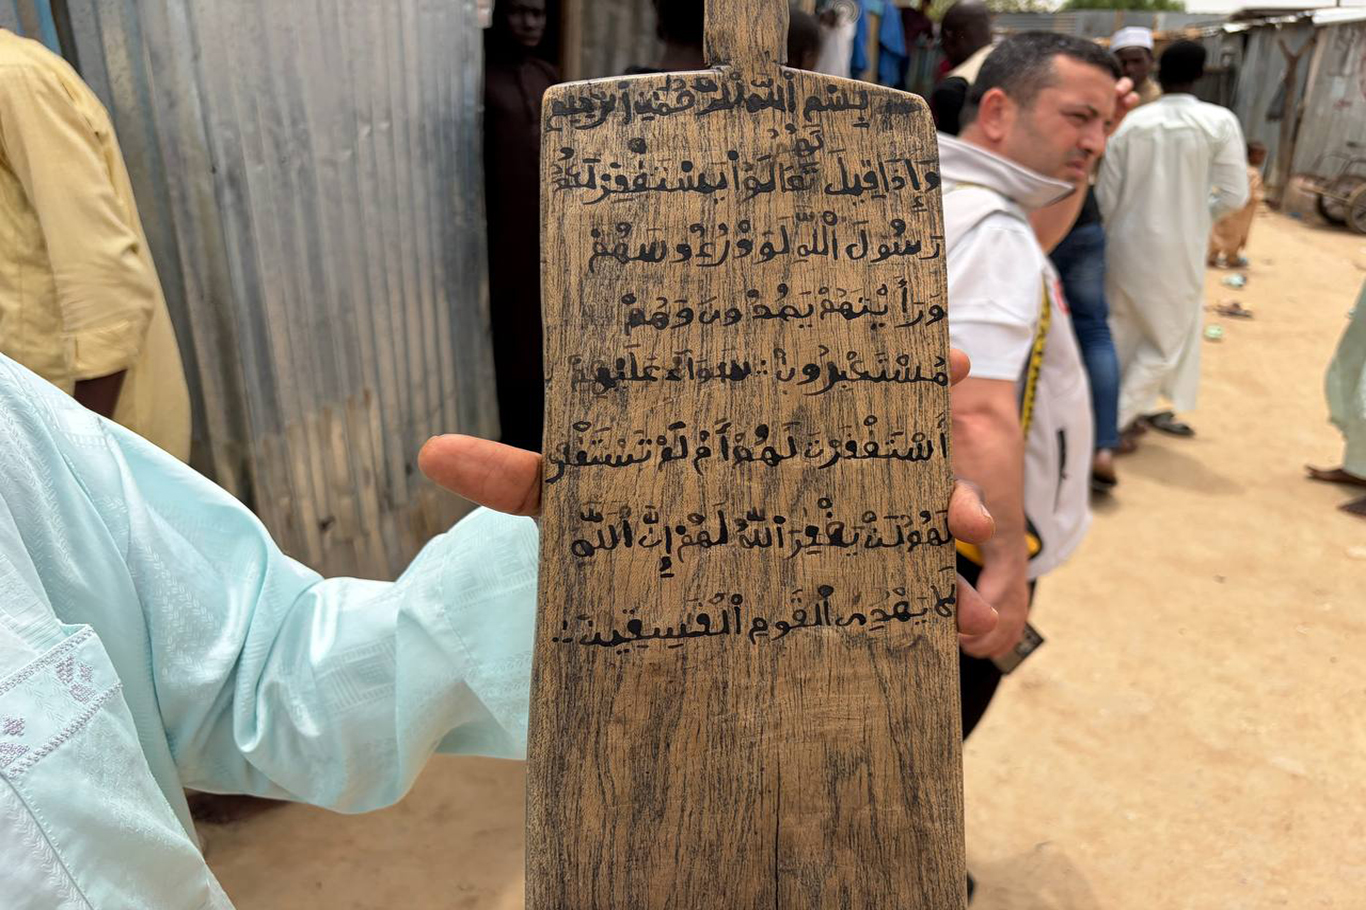 بِسْمِ اللَّهِ الرَّحْمَنِ الرَّحِيمِ
لَهُمْ
وَإِذَا قِيلَ تَعَالَوْا يَسْتَغْفِرْ لَكُمْ
رَسُولُ اللَّهِ لَوَوْ رُءُوسَهُمْ
وَرَأَيْتَهُمْ يَصُدُّونَ وَهُمْ
مُسْتَكْبِرُونَ ∴ سَوَآءٌ عَلَيْهِمْ
أَسْتَغْفَرْتَ لَهُمْ أَمْ لَمْ تَسْتَغْفِرْ
لَهُمْ لَنْ يَغْفِرَ اللَّهُ لَهُمْ إِنَّ اللَّهَ
لَا يَهْدِى الْقَوْمَ الْفَسِقِينَ ∴